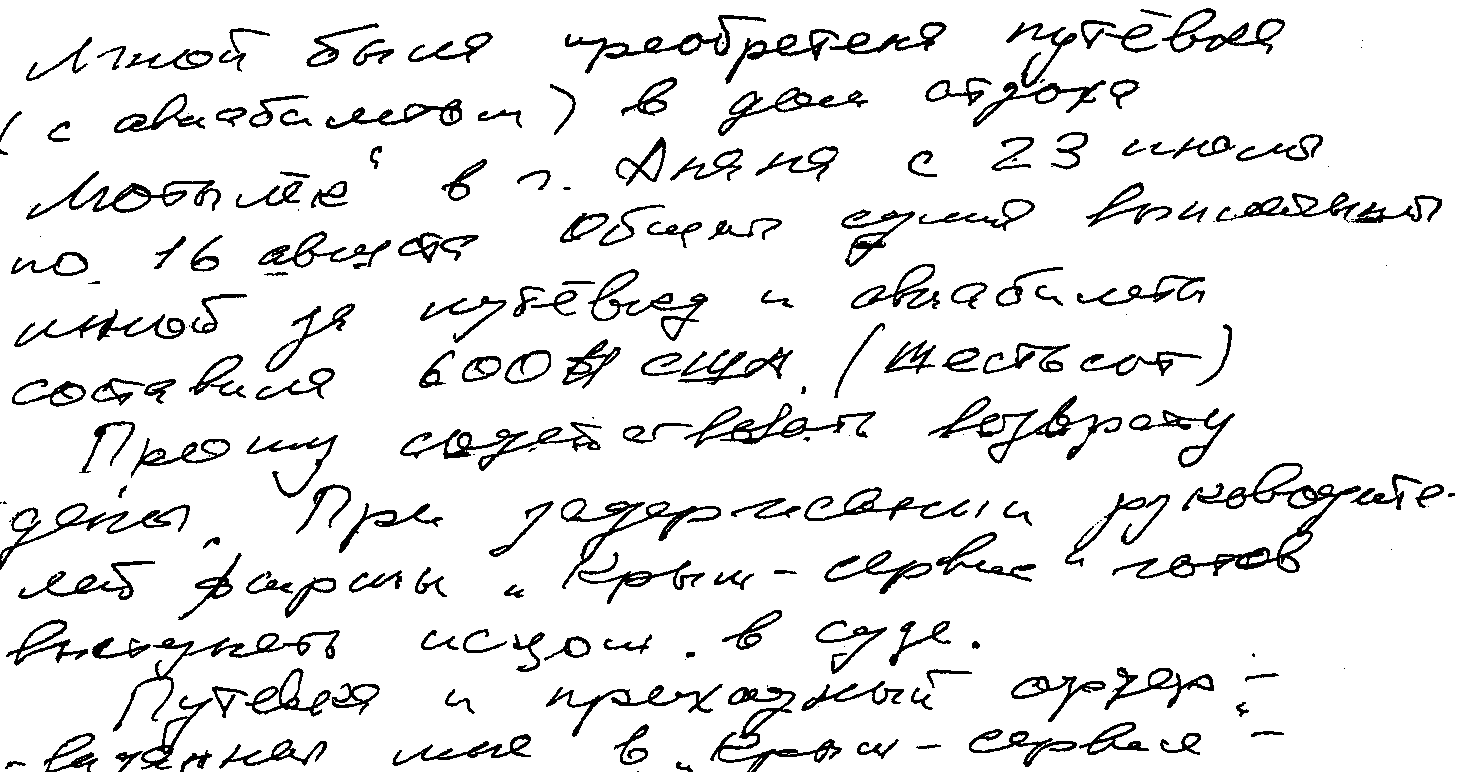 Мной была преобретена путёвка
(с авиабилетом) в дом отдыха
Мотылёк" в г. Анапа с 23 июля
по 16 августа Общая сумма выплаченная
мной за путёвку и авиабилеты
составила 600$ США. (Шестьсот)
Прошу содействовать возврату
денег. При задержании руководите-
лей фирмы "Крым-сервис" готов
выступать истцом в суде.
Путевка и приходный ордер -
- выданная мне в "Крым-сервисе -